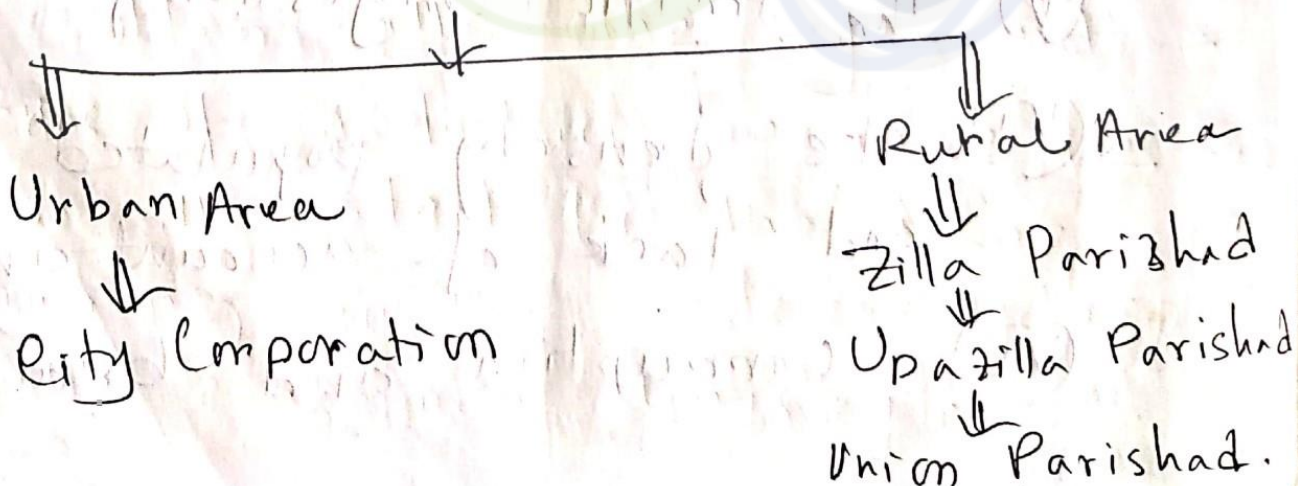 Urban Area
City Corporation
Rural Area
Zilla Parishad
Upazilla Parishad
Union Parishad.